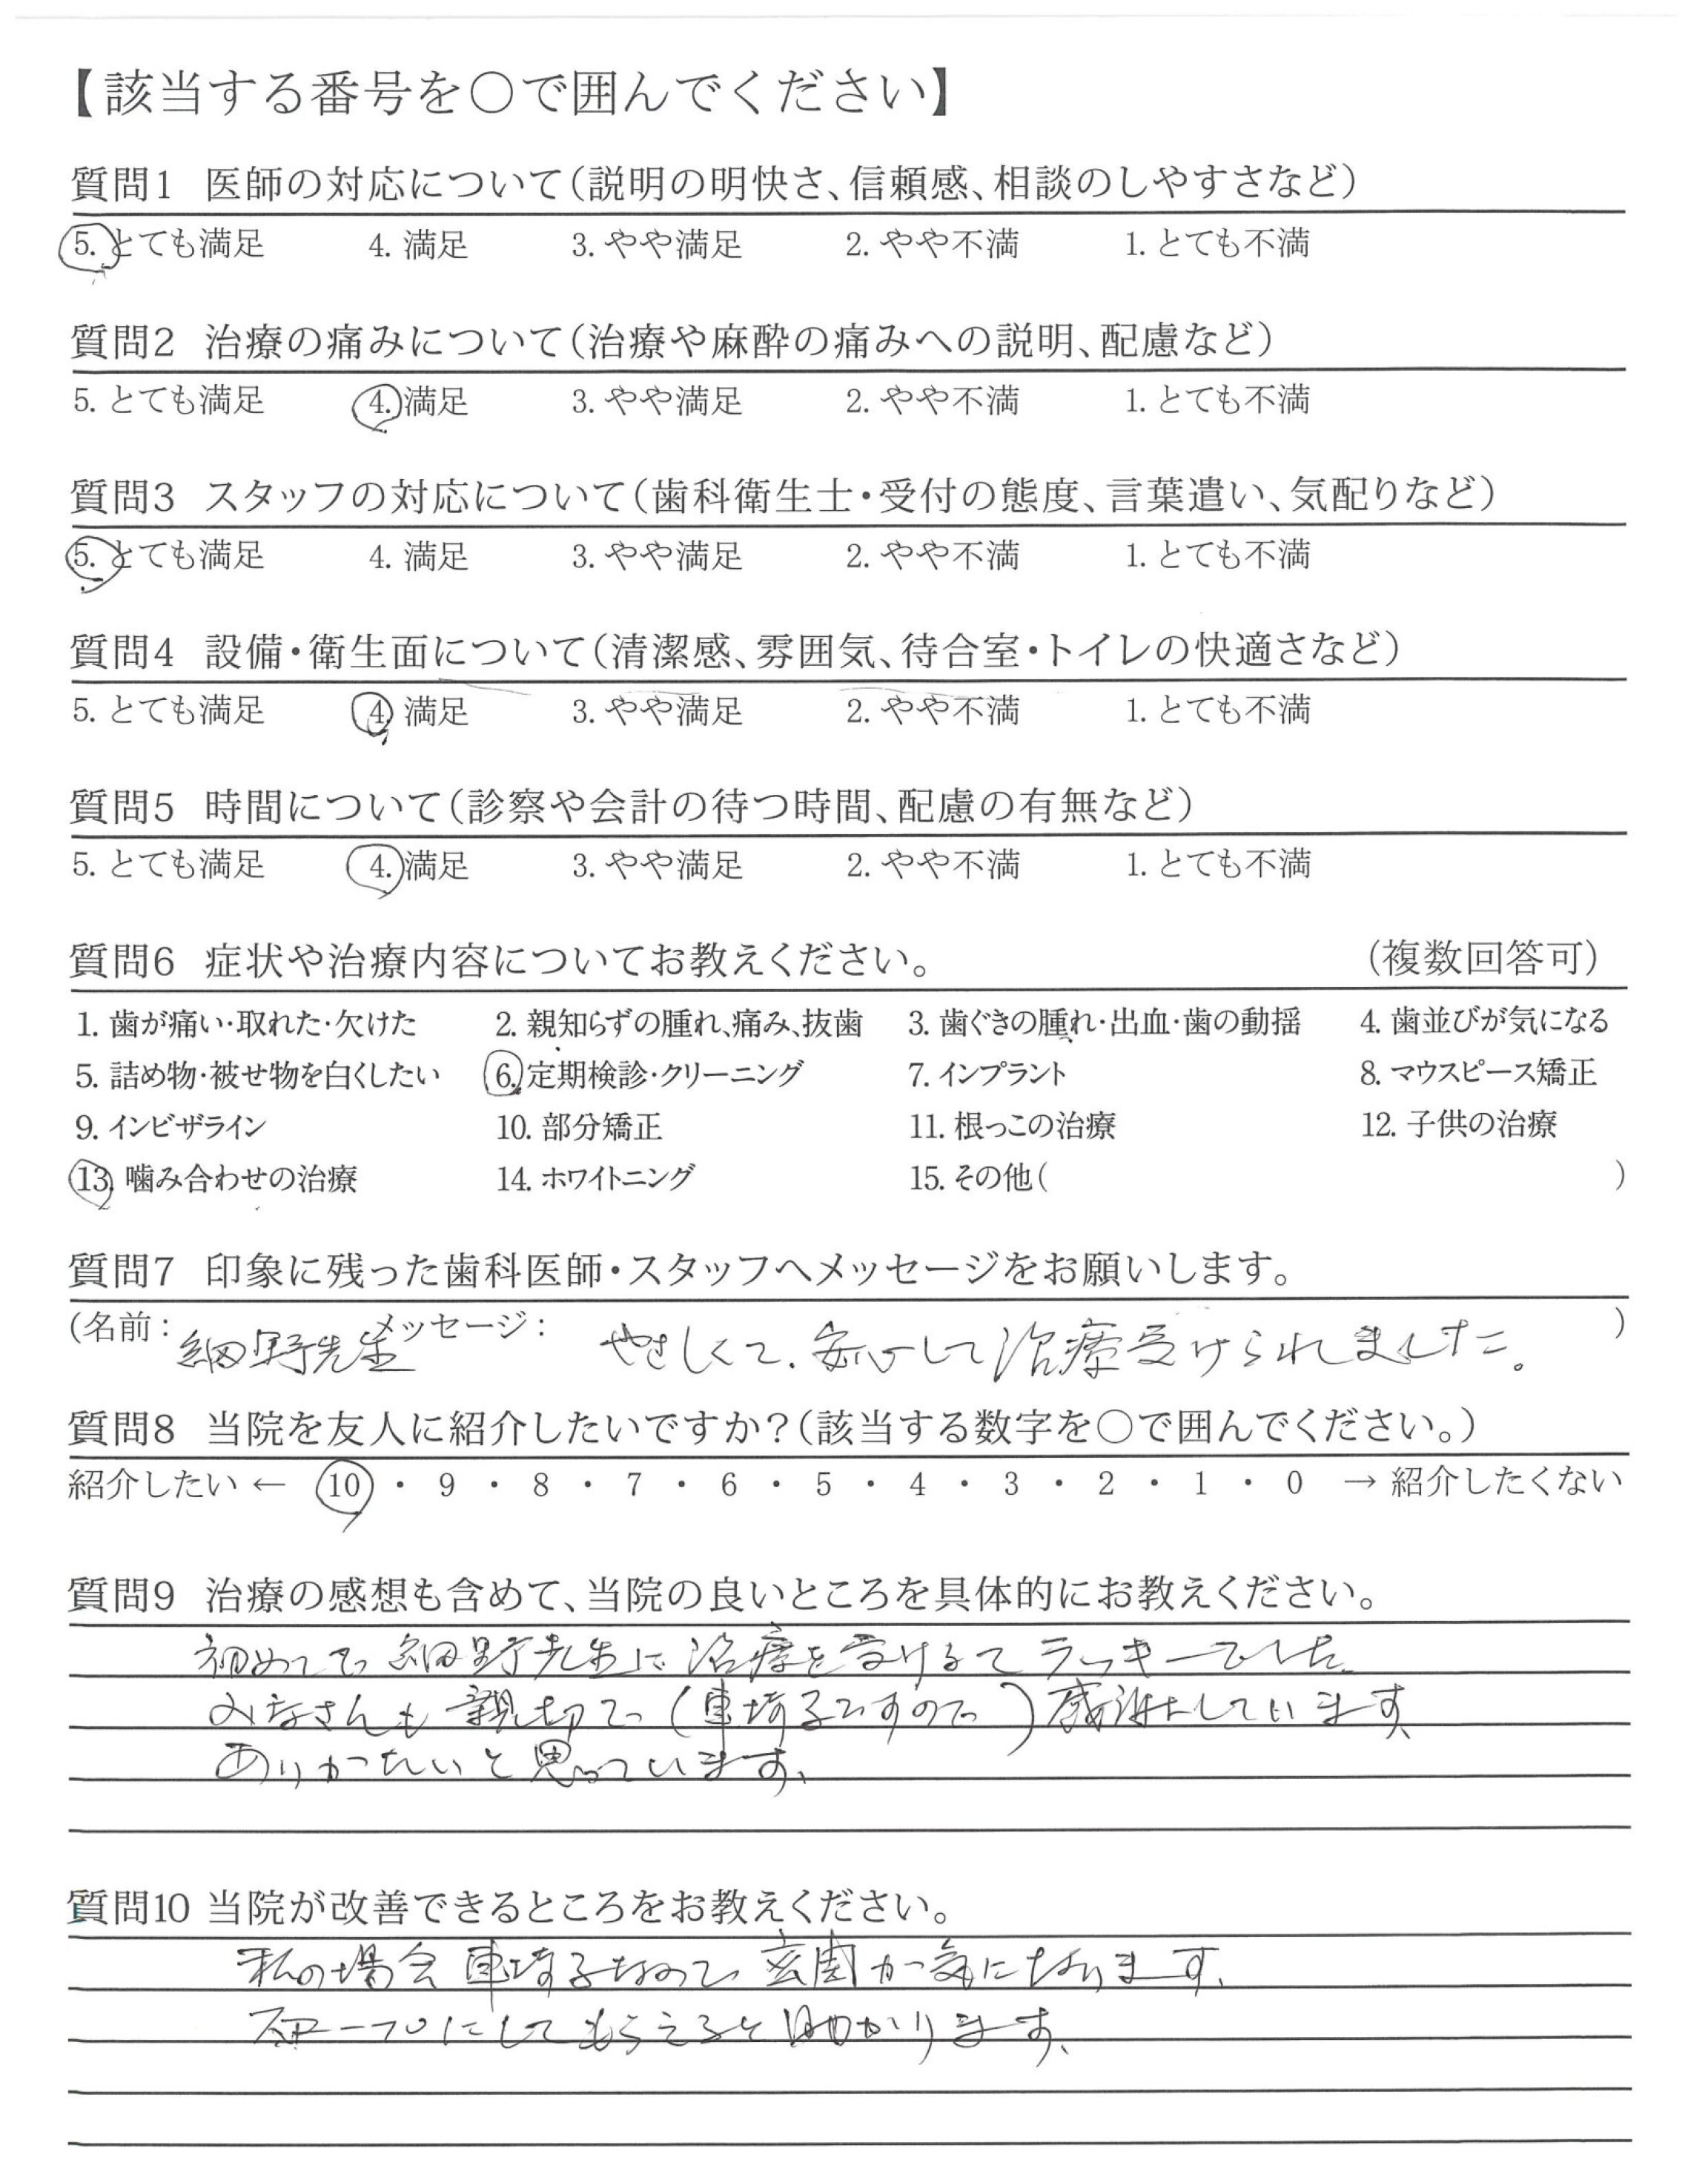 【該当する番号を○で囲んでください】
質問1 医師の対応について(説明の明快さ、信頼感、相談のしやすさなど)
5. とても満足 4. 満足 3. やや満足 2. やや不満 1. とても不満
質問2 治療の痛みについて(治療や麻酔の痛みへの説明、配慮など)
5. とても満足 4. 満足 3. やや満足 2. やや不満 1. とても不満
質問3 スタッフの対応について(歯科衛生士・受付の態度、言葉遣い、気配りなど)
5. とても満足 4. 満足 3. やや満足 2. やや不満 1. とても不満
質問4 設備・衛生面について(清潔感、雰囲気、待合室・トイレの快適さなど)
5. とても満足 4. 満足 3. やや満足 2. やや不満 1. とても不満
質問5 時間について(診察や会計の待つ時間、配慮の有無など)
5. とても満足 4. 満足 3. やや満足 2. やや不満 1. とても不満
質問6 症状や治療内容についてお教えください。 (複数回答可)
1. 歯が痛い・取れた・欠けた 2. 親知らずの腫れ、痛み、抜歯 3. 歯ぐきの腫れ・出血・歯の動揺 4. 歯並びが気になる
5. 詰め物・被せ物を白くしたい 6. 定期検診・クリーニング 7. インプラント 8. マウスピース矯正
9. インビザライン 10. 部分矯正 11. 根っこの治療 12. 子供の治療
13. 噛み合わせの治療 14. ホワイトニング 15. その他( )
質問7 印象に残った歯科医師・スタッフへメッセージをお願いします。
(名前: 細野先生 メッセージ: やさしくて、安心して治療受けられました。 )
質問8 当院を友人に紹介したいですか?(該当する数字を○で囲んでください。)
紹介したい ← 10 ・ 9 ・ 8 ・ 7 ・ 6 ・ 5 ・ 4 ・ 3 ・ 2 ・ 1 ・ 0 → 紹介したくない
質問9 治療の感想も含めて、当院の良いところを具体的にお教えください。
初めてで細野先生に治療を受けるてラッキーでした
みなさんも親切で(車埼子ですので)感謝しています
ありがたいと思っています、
質問10 当院が改善できるところをお教えください。
私の場合車埼子なので玄関が気になります、
スロープにしてもらえると助かります、